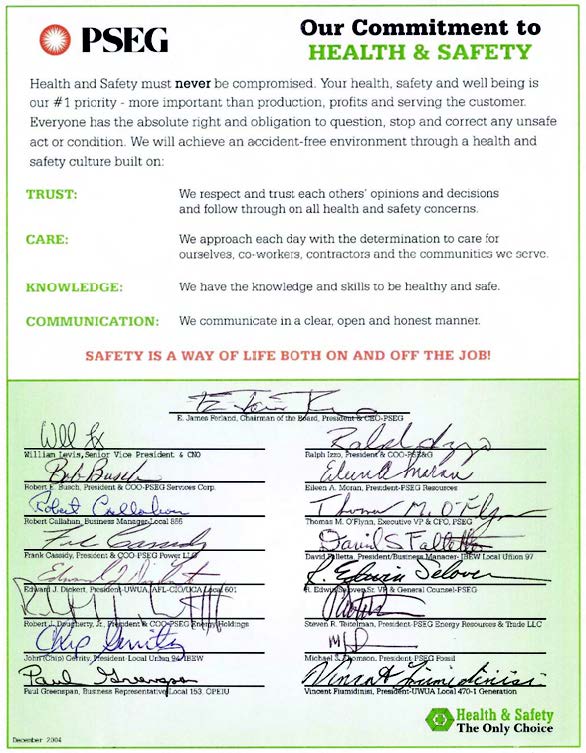 PSEG
Our Commitment to
HEALTH & SAFETY
Health and Safety must never be compromised. Your health, safety and well being is
our #1 priority - more important than production, profits and serving the customer.
Everyone has the absolute right and obligation to question, stop and correct any unsafe
act or condition. We will achieve an accident-free environment through a health and
safety culture built on:
TRUST: We respect and trust each others' opinions and decisions
and follow through on all health and safety concerns.
CARE: We approach each day with the determination to care for
ourselves, co-workers, contractors and the communities we serve.
KNOWLEDGE: We have the knowledge and skills to be healthy and safe.
COMMUNICATION: We communicate in a clear, open and honest manner.
SAFETY IS A WAY OF LIFE BOTH ON AND OFF THE JOB!
E. James Ferland, Chairman of the Board, President & CEO-PSEG
William Levis, Senior Vice President & CNO
Ralph Izzo, President & COO-PSE&G
Bob Busch
Robert E. Busch, President & COO-PSEG Services Corp.
Eileen A. Moran
Eileen A. Moran, President-PSEG Resources
Robert Callahan
Robert Callahan, Business Manager-Local 855
Thomas M. O'Flynn
Thomas M. O'Flynn, Executive VP & CFO, PSEG
Frank Cassidy, President & COO-PSEG Power LLC
David S Falletta
David Falletta, President/Business Manager- IBEW Local Union 97
Edward J. Dickert, President-UWUA, AFL-CIO/UCA Local 601
R. Edwin Selover
R. Edwin Selover, Sr. VP & General Counsel-PSEG
Robert J. Dougherty, Jr., President & COO-PSEG Energy Holdings
Steven R. Teitelman, President-PSEG Energy Resources & Trade LLC
Chip Gerrity
John (Chip) Gerrity, President-Local Union 94 IBEW
Michael J. Thomson, President-PSEG Fossil
Paul Greenspan
Paul Greenspan, Business Representative Local 153, OPEIU
Vincent Fiumidinisi
Vincent Fiumidinisi, President-UWUA Local 470-1 Generation
Health & Safety
The Only Choice
December 2004